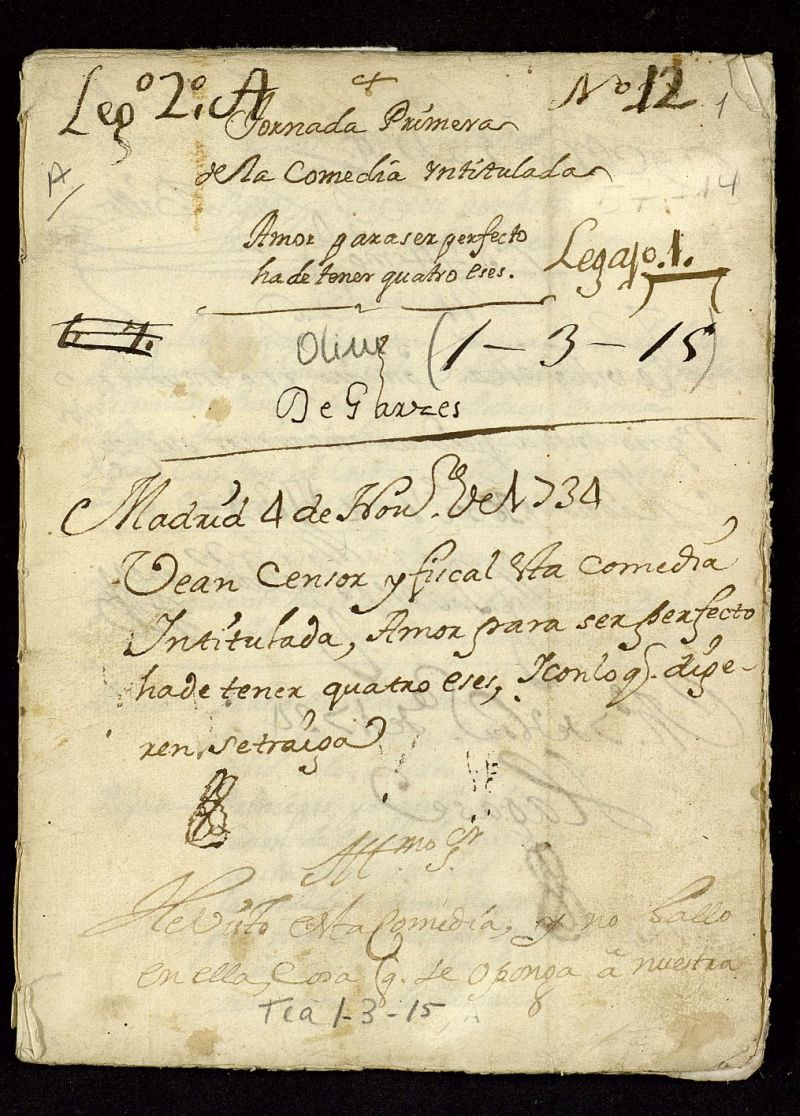 Leg.º 2.º A
Nº 12
1
Jornada Primera
A
de la Comedia Yntitulada
57-14
Amor para ser perfecto
ha de tener quatro eses.
Legajo. 1.
(1-3-15)
De Garzes
Madrid 4 de Nou.re de 1734
Vean Censor y fiscal esta comedia
Intitulada, Amor para ser perfecto
ha de tener quatro eses, I con lo q. dige-
ren, se traiga
Ill.mo S.r
He visto esta Comedia, y no hallo
en ella, Cosa q. se oponga â nuestra
Tea 1-3-15, A